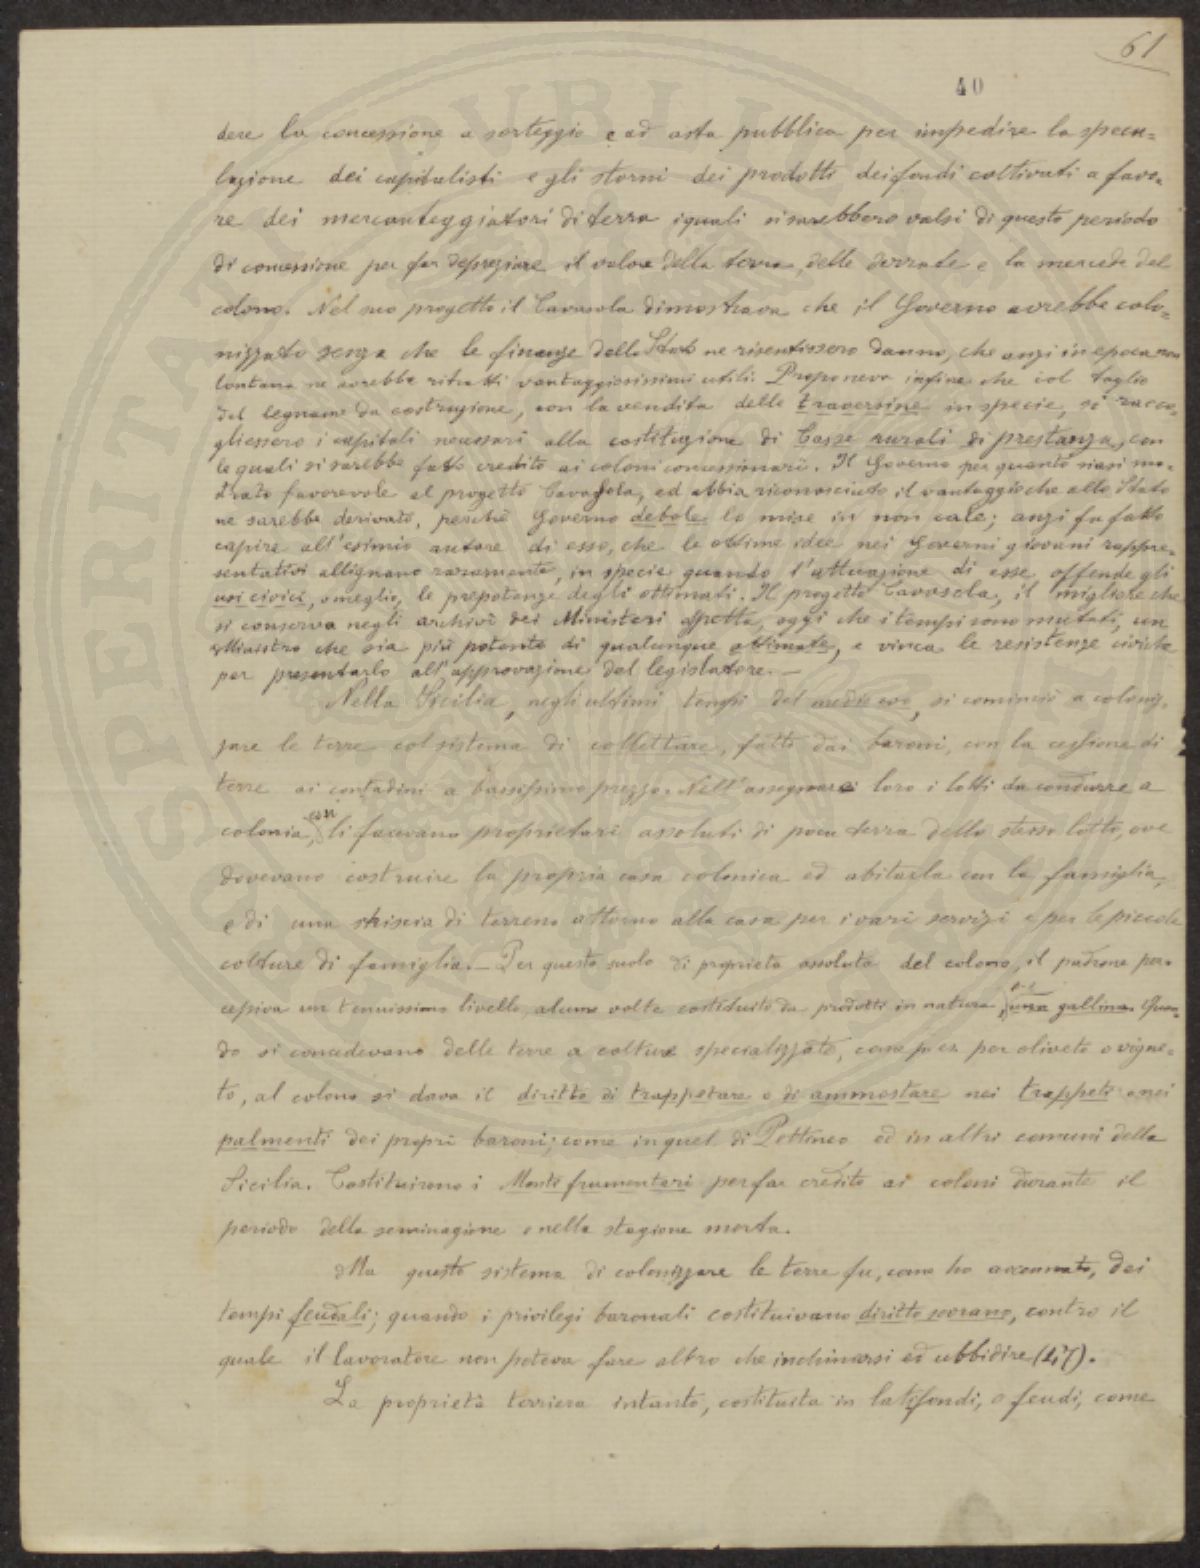 61
40
dere la concessione a sorteggio e ad asta pubblica per impedire la specu=
lazione dei capitalisti e gli storni dei prodotti dei fondi coltivati a favo=
re dei mercanteggiatori di terra i quali si sarebbero valsi di questo periodo
di concessione per far deprezzare il valore della terra, delle derrate e la mercede del
colono. Nel suo progetto il Cavasola dimostrava che il Governo avrebbe colo=
nizzato senza che le finanze dello Stato ne risentissero danno, che anzi in epoca non
lontana ne avrebbe ritratti vantaggiosissimi utili. Proponeva infine che col taglio
del legname da costruzione, con la vendita delle traversine in specie, si racco=
gliessero i capitali necessari alla costituzione di Casse rurali di prestanza, con
le quali si sarebbe fatto credito ai coloni concessionari. Il Governo per quanto siasi mo=
strato favorevole al progetto Cavasola, ed abbia riconosciuto il vantaggio che allo Stato
ne sarebbe derivato, perchè Governo debole lo mise in non cale; anzi fu fatto
capire all'esimio autore di esso, che le ottime idee nei Governi giovani rappre=
sentativi allignano raramente, in specie quando l'attuazione di esse, offende gli
usi civici, o meglio, le prepotenze degli ottimati. Il progetto Cavasola, il migliore che
si conserva negli archivi dei Ministeri aspetta, oggi che i tempi sono mutati, un
Ministro che sia più potente di qualunque ottimate, e vinca le resistenze civiche
per presentarlo all'approvazione del legislatore.—
Nella Sicilia, negli ultimi tempi del medio evo, si cominciò a coloniz=
zare le terre col sistema di collettare, fatto dai baroni, con la cessione di
terre ai contadini a bassissimo prezzo. Nell'assegnare loro i lotti da condurre a
colonia, essi li facevano proprietari assoluti di poca terra dello stesso lotto, ove
dovevano costruire la propria casa colonica ed abitarla con la famiglia,
e di una striscia di terreno attorno alla casa per i vari servizi e per le piccole
colture di famiglia.— Per questo suolo di proprietà assoluta del colono, il padrone per=
cepiva un tenuissimo livello, alcune volte costituito da prodotti in natura, una gallina. Quan=
do si concedevano delle terre a colture specializzate, come p. es. per oliveto o vigne=
to, al colono si dava il diritto di trappetare e di ammostare nei trappeti e nei
palmenti dei propri baroni; come in quel di Pettineo ed in altri comuni della
Sicilia. Costituirono i Monti frumentari per far credito ai coloni durante il
periodo della seminagione e nella stagione morta.
Ma questo sistema di colonizzare le terre fu, come ho accennato, dei
tempi feudali; quando i privilegi baronali costituivano diritto sovrano, contro il
quale il lavoratore non poteva fare altro che inchinarsi ed ubbidire (17).
La proprietà terriera intanto, costituita in latifondi, o feudi, come